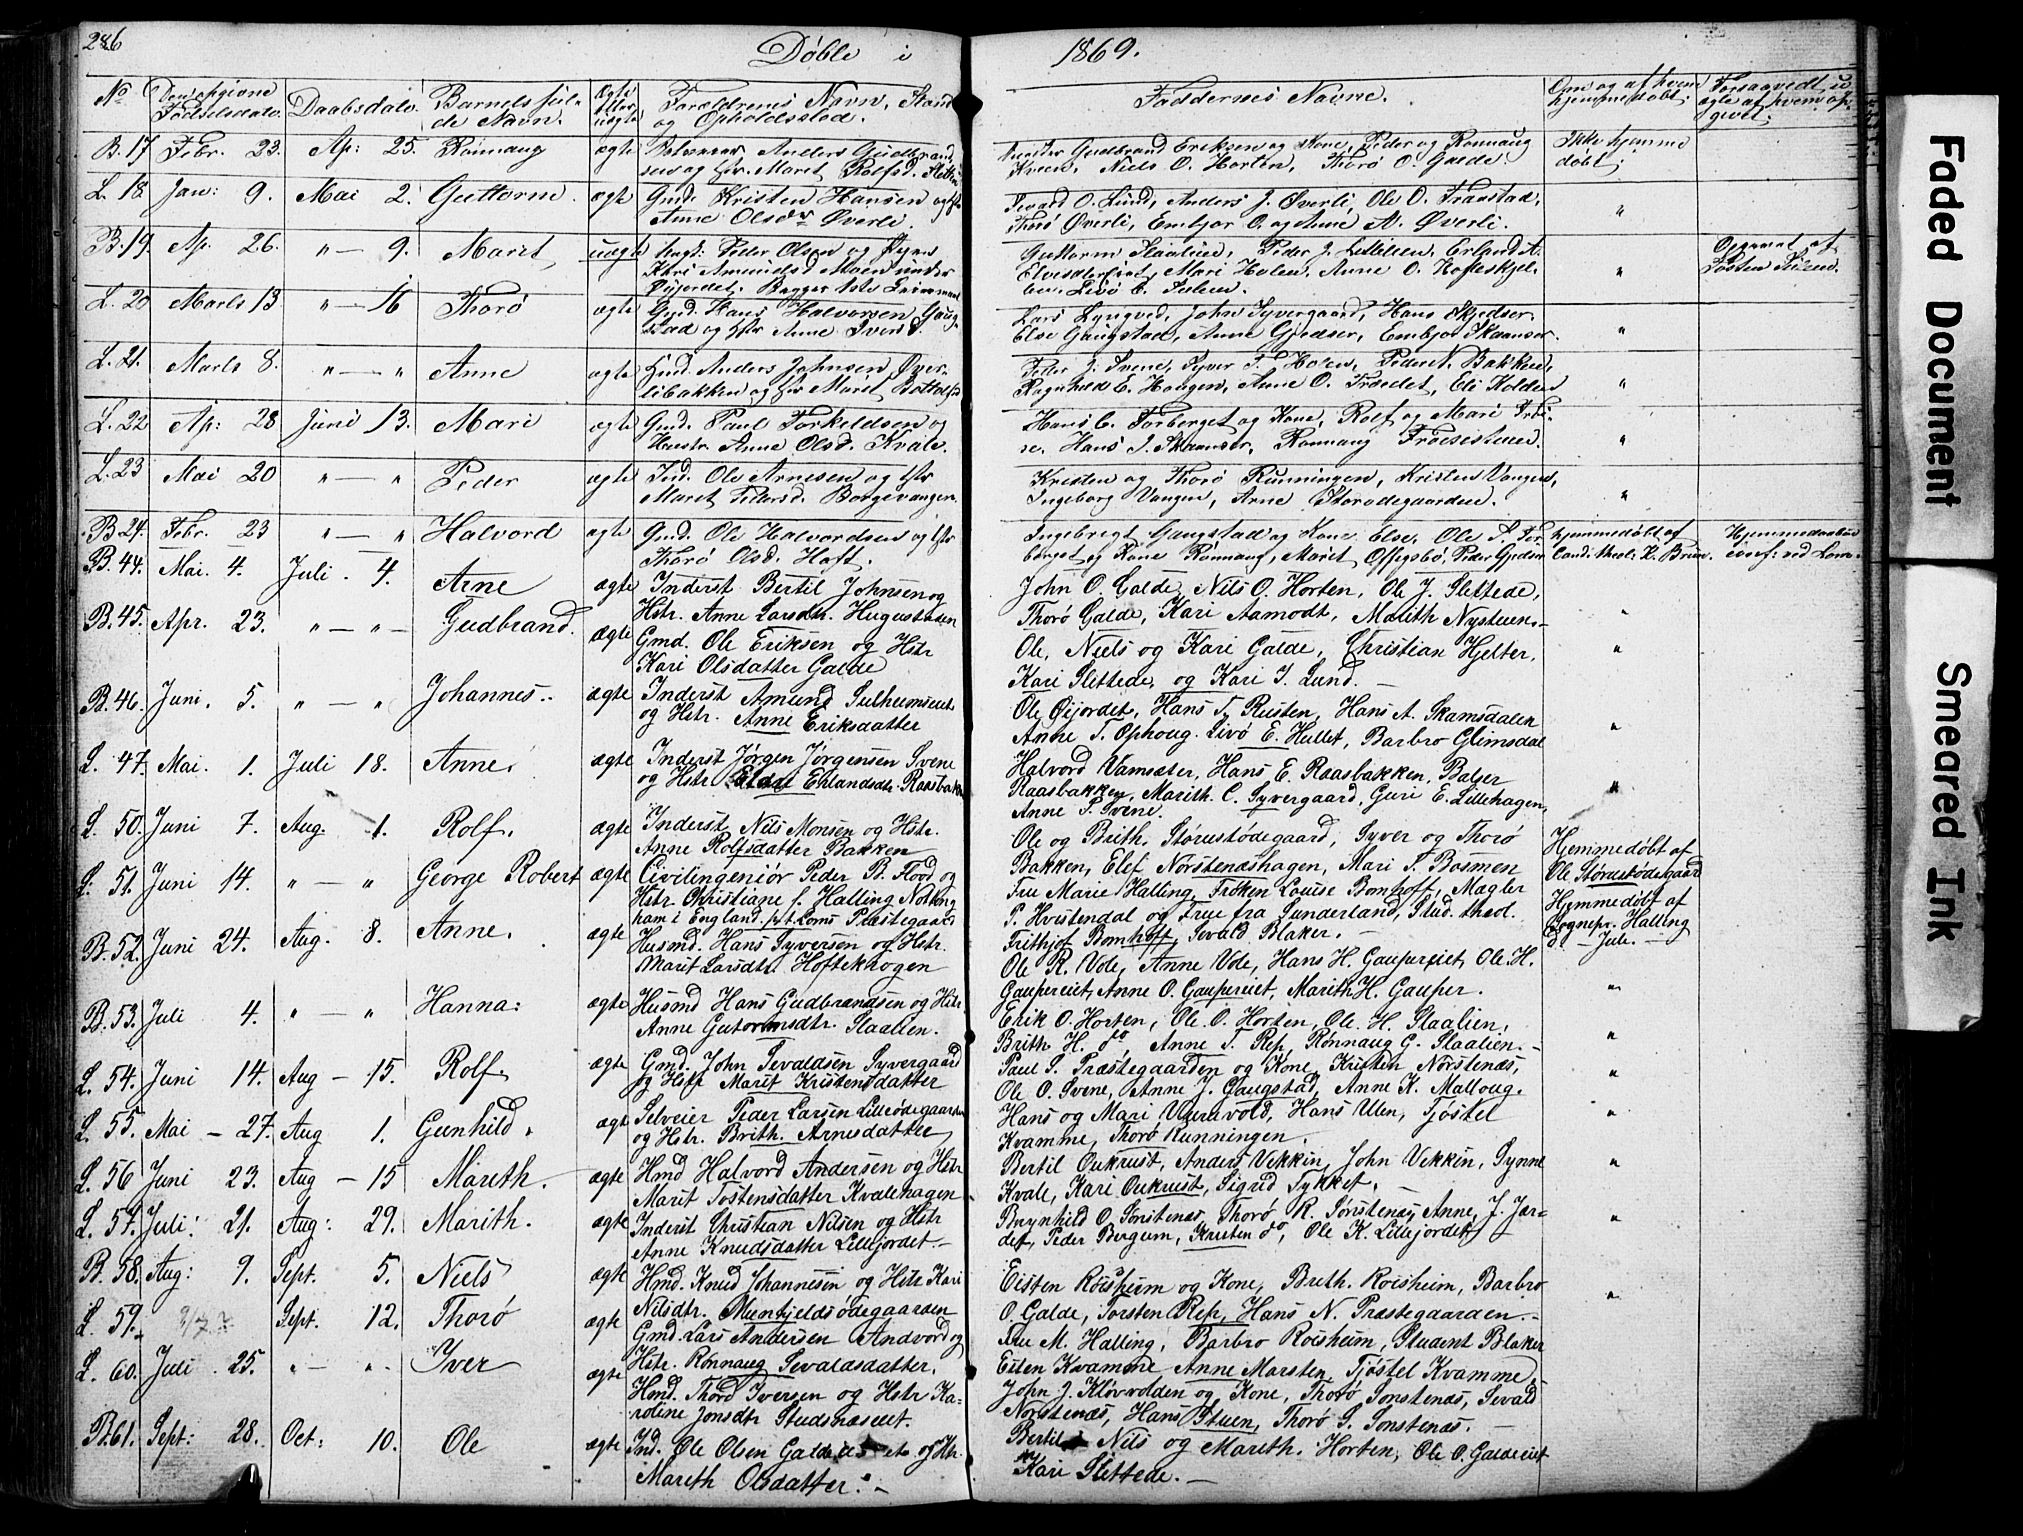 286
Døbte i 1869.
No
Den opgivne Fødselsdato.
Daabsdato.
Barnets fulde Navn.
Ægte eller uægte
Forældrenes Navn, Stand og Opholdssted.
Faddernes Navne.
Om og af hvem hjemmedøbt.
B. 17 Febr. 23. Ap: 25. Rønnaug ægte Anders Gudbrand
sen og Hr. Maret Rolfsd.
Gudbrand Eriksen og Kone, Peder og Rønnaug
Kveen, Niels O. Horten, Thorø O. Galde.
Ikke hjemme
døbt.
L. 18 Jan: 9. Mai 2. Guttorm. ægte Gmd. Kristen Hansen og Hr
Anne Olsdr Øverli.
Sevard O. Lund, Anders J. Øverli, Ole O. Franstad,
Thorø Øverli, Embjør O. og Anne A. Øverli.
"
B. 19. Ap. 26. " — 9. Maret uægte Ungk: Peder Olsen og Pigen
Kari Amundsd Moen under
Øijordet. Begges 1ste Leiermaal
Guttorm Slaalien, Peder J.
Mari Holen, Anne O.
"
Opgivet af
L. 20 Marts 13 " — 16 Thorø ægte Gmd. Hans Halvorsen Gaug
stad og Hr Anne Iversd.
Lars Lyngved, John Syvergaard, Hans
Else Gaugstad, Anne Gjedser, Embjør Skamsar.
"
L. 21. Marts 8. " — " Anne ægte Hmd. Anders Johnsen Øver
libakken og Hr Maret
Peder J. Svene, Syver Peder N. Bakken,
Ragnhild E. Haugen, Anne O. Eli Kolden
"
L. 22 Ap: 28 Juni 13. Mari ægte Gmd. Paul Torkeldsen og
Hustr. Anne Olsd. Kvale.
Hans C. Forberget og Kone, Rolf og Mari Frøi
se, Hans J. Skamsar, Rønnaug Frøisistuen.
"
L. 23 Mai 20 " — " Peder ægte Ind. Ole Arnesen og Hr
Maret Pedersd. Borgevangen.
Kristen og Thorø Runningen, Kristen Vangen,
Ingeborg Vangen, Arne Storødegaarden.
"
B 24. Febr. 23 " — " Halvord ægte Gmd. Ole Halvordsen og Hr
Thorø Olsd. Hoft.
Ingebregt Gaugstad og Kone Else, Ole S. For
berget og Kone Rønnaug, Maret Offigsbø, Peder Gjedser
hjemmedøbt af
Cand: theol: K. Brun.
Hjemmedaaben
conf: ved Lom.
B. 44. Mai. 4. Juli. 4. Arne ægte Inderst Bertil Johnsen og
Hstr. Anne Larsdtr. Hugustuen
John O. Galde, Nils O. Horten, Ole J. Slettede,
Thorø Galde, Kari Aamodt, Marith Nystuen.-
"
B. 45. Apr. 23. " — " — Gudbrand. ægte Gmd. Ole Eriksen og Hstr
Kari Olsdatter Galde
Ole, Niels og Kari Galde, Christian Hjelter,
Kari Slettede, og Kari J. Lund. -
"
B. 46. Juni. 5. " — " Johannes.. ægte Inderst Amund Sulheimseie
og Hstr. Anne Eriksdatter
Ole Øijordet, Hans T. Rusten, Hans A. Skamsdalen
Anne T. Ophoug. Livø E. Hullet, Barbro Glimsdal
"
L. 47. Mai. 1. Juli 18. Anne. ægte Inderst Jørgen Jørgensen Svene
og Hstr Erlandsdtr. Raasbakk
Halvord Vamsæter, Hans E. Raasbakken, Balser
Raasbakken, Marith. C. Syvergaard, Guri E. Lillehagen,
Anne P. Svene.
"
L. 50. Juni 7. Aug. 1. Rolf. ægte Inderst Nils Monsen og Hstr.
Anne Rolfsdatter Bakken
Ole og Brith. Størustødegaard, Syver og Thorø
Bakken, Elef Nørstenæshagen, Mari S. Bosmen
Hjemmedøbt af
Ole Størustødegaard
L: 51. Juni 14. " — " George Robert ægte Civilingeniør Peder B. Flood og
Hstr Christiane f. Halling Notting
ham i England. p.t. Loms Præstegaard
Fru Marie Halling, Frøken Louise Bomhoff, Mægler
P. Hvistendal og Frue fra Sunderland, Stud. theol.
Frithjof Bomhoff, Sevald Blaker. -
Hjemmedøbt af
Sognepr. Halling
d. - Juli. -
B. 52. Juni 24. Aug. 8. Anne. ægte Husmd. Hans Syversen og Hstr.
Marit Larsdtr. Høftekrogen
Ole R. Vole, Anne Vole, Hans H. Gaupereiet, Ole H.
Gaupereiet, Anne O. Gaupereiet, Marith H. Gauper.
"
B. 53. Juli 4. " — " Hanna: ægte Husmd Hans Gudbrandsen og Hstr
Anne Gutormsdtr. Slaalien.
Erik O. Horten, Ole O. Horten, Ole. H. Slaalien,
Brith H. do Anne T. Rep, Rønnaug G. Slaalien.-
"
L. 54. Juni 14. Aug — 15. Rolf. ægte Gmd. John Sevaldsen Syvergaard
og Hstr Marit Kristensdatter
Paul S. Præstegaarden og Kone, Kristen Nørstenæs,
Ole O. Svene, Anne J. Gaugstad, Anne K. Malloug.
"
L. 55. Mai — 27. Aug 1. Gunhild. ægte Selveier Peder Larsen Lilleødegaarden
og Hstr. Brith. Arnesdatter
Hans og Mari Hans Ulen, Tjøstel
Kvamme, Thorø Runningen.
"
L. 56 Juni 23. Aug — 15 Mareth. ægte Hmd Halvord Andersen og Hstr
Marit Tostensdatter Kvalehagen
Bertil Oukrust, Anders Vekkin, John Vekkin, Synne
Kvale, Kari Oukrust, Sigrid Tykket.
"
L. 57. Juli. 21. Aug: 29. Marith. ægte Inderst Christian Nilsen og Hstr
Anne Knudsdatter Lillejordet.-
Brynhild O. Sørstenæs, Thorø R. Sørstenæs, Anne J. Jor=
det, Peder Bergum, Kristen do, Ole K. Lillejordet
"
B. 58. Aug: 9. Sept. 5. Niels ægte Hmd. Knud Johannesen og Hstr Kari
Nilsdtr. Munkjeldsødegaarden
Eisten Røisheim og Kone, Brith. Roisheim, Barbro
O. Galde, Torsten Rep, Hans N. Præstegaarden.-
"
L. 59. 2/7? Sept. 12. Thorø ægte Gmd. Lars Andersen Andvord og
Hstr. Rønnaug Sevaldsdatter.
Fru M. Halling, Barbro Roisheim, Student Blaker
Eisten Kvamme Anne Marsten, Tjøstel Kvamme.
L. 60. Juli. 25. " — ". Iver ægte Hmd. Thord Iversen og Hstr Ka=
roline Jonsdtr Studsnæseiet.
John J. Kløvvolden og Kone, Thorø Sønstenæs, Sevald
Nørstenæs, Hans Stuen, Thorø S. Sønstenæs.
B. 61. Sept: 28. Oct: 10. Ole ægte Ind. Ole Olsen Galdeeiet og Hstr.
Mareth Olsdatter. -
Bertil Nils og Mareth. Horten, Ole O. Galdeeiet
Kari Slettede. -
Faded Document
Smeared Ink